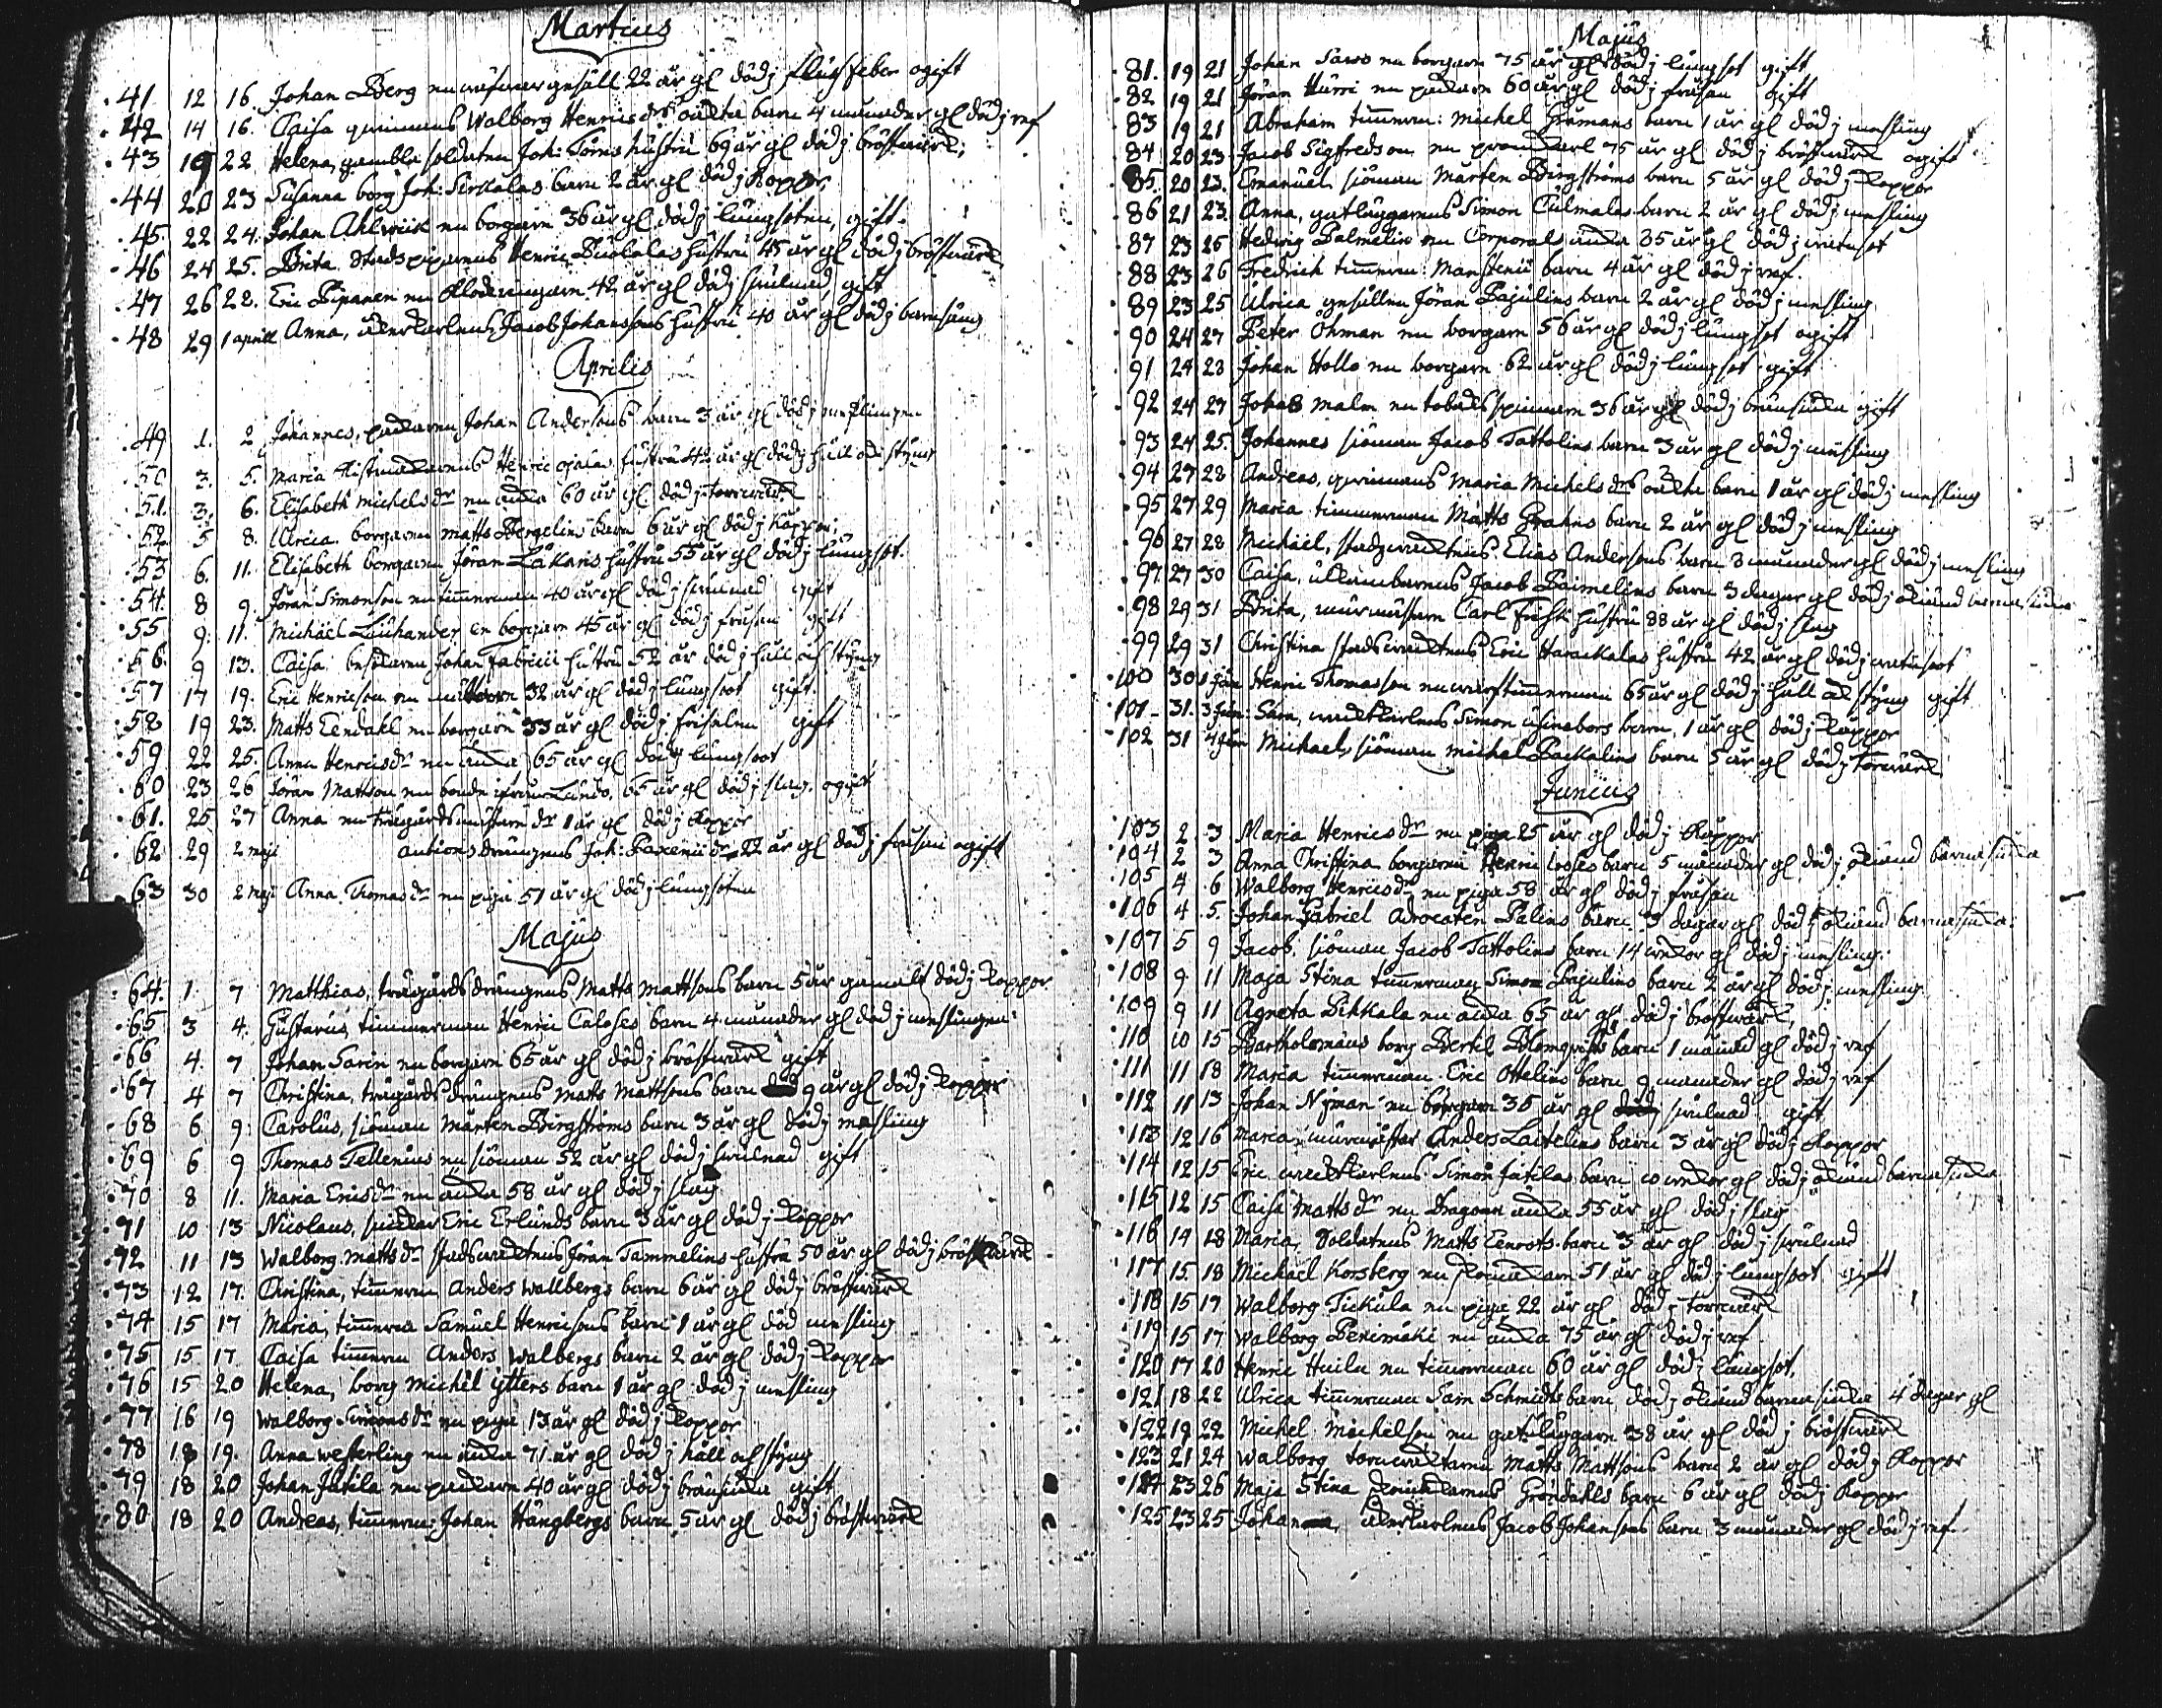 Martius
41 12 16. Johan Berg en gesäll 22 år gl död j fläckfeber ogift
42 14 16. Caisa qvinnans Walborg Henrics drs oäkta barn 4 månader gl död j ref
43 19 22 Helena, gamble soldaten Joh: Törns hustru 69 år gl död j bröstwärk;
44 20 23 Susanna borg Joh: Sirkalas barn 2 år gl död j Koppor
45. 22 24. Johan Ahlwiik en borgare 36 år gl död j lungsoten, gift.
46 24 25. Brita Stads pigarnes Henric hustru 45 år gl död j bröstwärk
47 26 28. Eric Pipanen en 42 år gl död j swulnad gift
48 29 1 aprill Anna, åkerkarlens Jacob Johanssons hustru 40 år gl död j barnsäng
Aprilis
49 1. 2 Johannes, packaren Johan Andersons barn 3 år gl död j meslingen
50 3. 5. Maria Henric Ojalas hustru 42 år gl död j håll och styng
51. 3. 6. Elisabeth Michels dr en änka 60 år gl död j torrwärk
52. 5 8. Ulrica borgaren Matts Bergelins barn 6 år gl död j Koppor;
53 6. 11. Elisabeth borgaren Jöran Läkaris hustru 55 år gl död j lungsot.
54. 8 9. Jöran Simonson en timmerman 40 år gl död j swulnad gift
55 9. 11. Michäel en borgare 45 år gl död j fråsan gift
56. 9 13. Caisa besökaren Johan Fabricii hustru 52 år död j håll och styng
57 17 19. Eric Henricson en 32 år gl död j lungsoot gift.
58 19 23. Matts Lendahl en borgare 33 år gl död j gift
59 22 25. Anna Henrics dr en änka 65 år gl död j lungsoot
60 23 26 Jöran Matson en bonde ifrån Lundo, 65 år gl död j slag. ogift
61. 25 27 Anna en trägårdsmästare dr 1 år gl död j Koppor
62 29 2 maji auctions drängens Joh: dr 22 år gl död j fråsan ogift
63 30 2 maji Anna Thomas dr en piga 51 år gl död j lungsoten
Majus
64. 1. 7 Matthias, trägårds drängens Matts Mattsons barn 5 år gamalt död j Koppor
65 3 4. Gustavus, timmerman Henric barn 4 månader gl död j meslingen.
66 4. 7 Johan Sarin en borgare 65 år gl död j bröstwärk gift
67 4 7 Christina, trägårds drängens Matts Mattsons barn 9 år gl död j Koppor
68 6 9. Carolus, sjöman Mårten Bergströms barn 3 år gl död j mesling
69 6 9 Thomas Tellenius en sjöman 52 år gl död j swulnad gift
70 8 11. Maria Erics dr en änka 58 år gl död j slag
71 10 13 Nicolaus, Eric Erlunds barn 3 år gl död j Koppor
72 11 13 Walborg Matts dr stadswaktens Jöran Tammelins hustru 50 år gl död j bröstwärk
73 12 17. Christina, timmerm Anders Wallbergs barn 6 år gl död j bröstwärk
74 15 17 Maria, timmerm Samuel Henrisons barn 1 år gl död mesling
75 15 17 Caisa timmerm Anders Walbergs barn 2 år gl död j Koppor
76 15 20 Helena, borg Michel Ytters barn 1 år gl död j mesling
77 16 19 Walborg Simons dr en piga 13 år gl död j Koppor
78 18 19. Anna Westerling en änka 71 år gl död j håll och styng
79 18 20 Johan Jutila en packare 40 år gl död j brännsiuka gift
80 18 20 Andreas, timmerm: Johan Hängbergs barn 5 år gl död j bröstwärk
Majus
81. 19 21 Johan Saxo en borgare 75 år gl död j lungsot gift
82 19 21 Jöran Hurri en packare 60 år gl död j fråsan gift
83 19 21 Abraham timmerm: Michel Gråmans barn 1 år gl död j mesling
84 20 23 Jacob Sigfredson en 75 år gl död j bröstwärk ogift
85. 20 23. Emanuel sjöman Mårten Bergströms barn 5 år gl död j Koppor
86 21 23. Anna, gatläggarens Simon Culmalas barn 2 år gl död j mesling
87 23 25 Hedwig Palmelin en Corporals änka 35 år gl död j wattusot
88 23 26 Fredrich timmerm: Manstenii barn 4 år gl död j ref.
89 23 25 Ulrica gesällen Jöran Pajulins barn 2 år gl död j mesling
90 24 27 Peter Öhman en borgare 56 år gl död j lungsot ogift
91 24 28 Johan Hollo en borgare 62 år gl död j lungsot gift
92 24 27 Johan Malm en tobaks spinnare 36 år gl död j brännsiuka gift
93 24 25. Johannes sjöman Jacob Tattolins barn 3 år gl död j mesling
94 27 28 Andreas, qvinnans Maria Michels drs oäkta barn 1 år gl död j mesling
95 27 29 Maria timmerman Matts Grahns barn 2 år gl död j mesling
96 27 28 Michäel, stadzwaktens Elias Andersons barn 3 månader gl död j mesling
97 27 30 Caisa, Jacob Paimelins barn 3 dagar gl död j okänd barnasiuka
98 29 31 Brita, murmästare Carl hustru 88 år gl död j slag
99 29 31 Christina stadswaktens Eric Harackalas hustru 42 år gl död j wattusoot
100 30 1 Jun Henric Thomasson en timmerman 65 år gl död j håll och styng gift
101 31. 3 Jun: Sara, wracktkarlens Simon barn 1 år gl död j Koppor
102 31 4 Jun Michael, sjöman Michel Packalins barn 5 år gl död j torrwärk
Junius
103 2 3 Maria Henrics dr en piga 25 år gl död j Koppor
104 2 3 Anna Christina borgaren Henric barn 5 månader gl död j okänd barnasiuka
105 4 6 Walborg Henrics dr en piga 58 år gl död j fråsan
106 4 5. Johan Gabriel Advocaten Palins barn 3 dagar gl död j okänd barnasiuka.
107 5 9 Jacob, sjöman Jacob Tattolins barn 14 wekor gl död j mesling.
108 9 11 Maja Stina timmerman Simon Pajulins barn 2 år gl död j mesling
109 9 11 Agneta Pikkala en änka 65 år gl död j bröstwärk,
110 10 15 Bartholomäus borg Bertil Blomqvists barn 1 månad gl död j ref
111 11 18 Maria timmerman Eric Ottelins barn 9 månader gl död j ref
112 11 13 Johan Nyman en borgare 35 år gl swulnad gift
113 12 16 Maria, murmästar Anders Laitelins barn 3 år gl död j Koppor
114 12 15 Eric Simon Jutilas barn 10 wekor gl död j okänd barnasiuka
115 12 15 Caisa Matts dr en Dragoun änka 55 år gl död j slag
116 14 18 Maria, Soldatens Matts Eenroots barn 3 år gl död j swulnad
117 15. 18 Michael Korsberg en 51 år gl död j lungsoot gift
118 15 17 Walborg Tickula en piga 22 år gl död j torrwärk
119 15 17 Walborg Penimäki en änka 75 år gl död j ref.
120 17 20 Henric Huila en timmerman 60 år gl död j lungsot.
121 18 22 Ulrica timmerman Sam Schmidts barn död j okänd barnasiuka 4 dagar gl
122 19 22 Michel Michelson en gatuläggare 38 år gl död j bröstwärk
123 21 24 Walborg tornwäktaren Matts Mattsons barn 2 år gl död j Koppor
124 23 26 Maja Stina Gröndahls barn 6 år gl död j Koppor
125 23 25 Johan, åkerkarlens Jacob Johansons barn 3 månader gl död j ref.